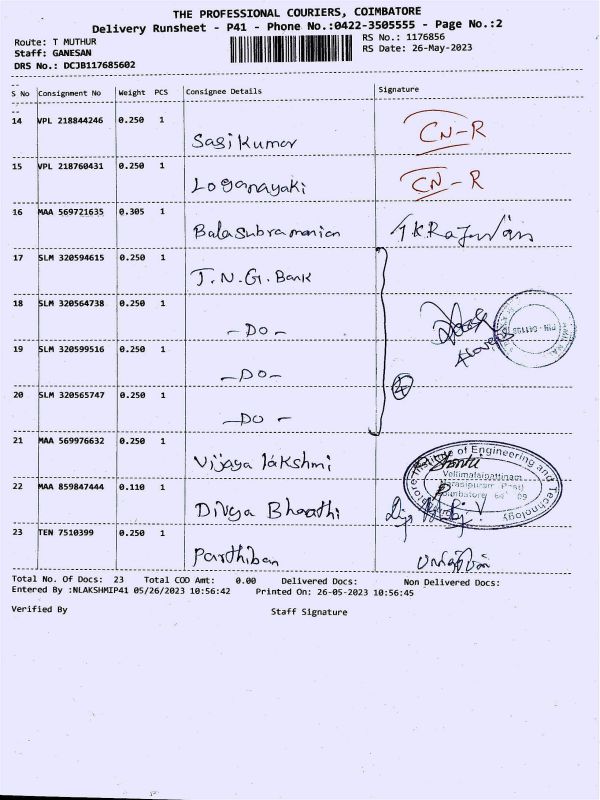 THE PROFESSIONAL COURIERS, COIMBATORE
Delivery Runsheet - P41 - Phone No.:0422-3505555 - Page No.:2
Route: T MUTHUR
Staff: GANESAN
DRS No.: DCJB117685602
RS No.: 1176856
RS Date: 26-May-2023
S No Consignment No Weight PCS Consignee Details Signature
14 VPL 218844246 0.250 1 Sasi Kumar CN-R
15 VPL 218760431 0.250 1 Loganayaki CN-R
16 MAA 569721635 0.305 1 Balasubramanian
17 SLM 320594615 0.250 1 T.N.G. Bank
18 SLM 320564738 0.250 1 -DO-
19 SLM 320599516 0.250 1 -DO-
20 SLM 320565747 0.250 1 -DO-
4
21 MAA 569976632 0.250 1 Vijaya lakshmi
Institute of Engineering and Technology
Vellimalaipattinam
Narasipuram Post
Coimbatore
22 MAA 859847444 0.110 1 Divya Bharathi
23 TEN 7510399 0.250 1 Parthiban
Total No. Of Docs: 23 Total COD Amt: 0.00 Delivered Docs: Non Delivered Docs:
Entered By :NLAKSHMIP41 05/26/2023 10:56:42 Printed On: 26-05-2023 10:56:45
Verified By Staff Signature